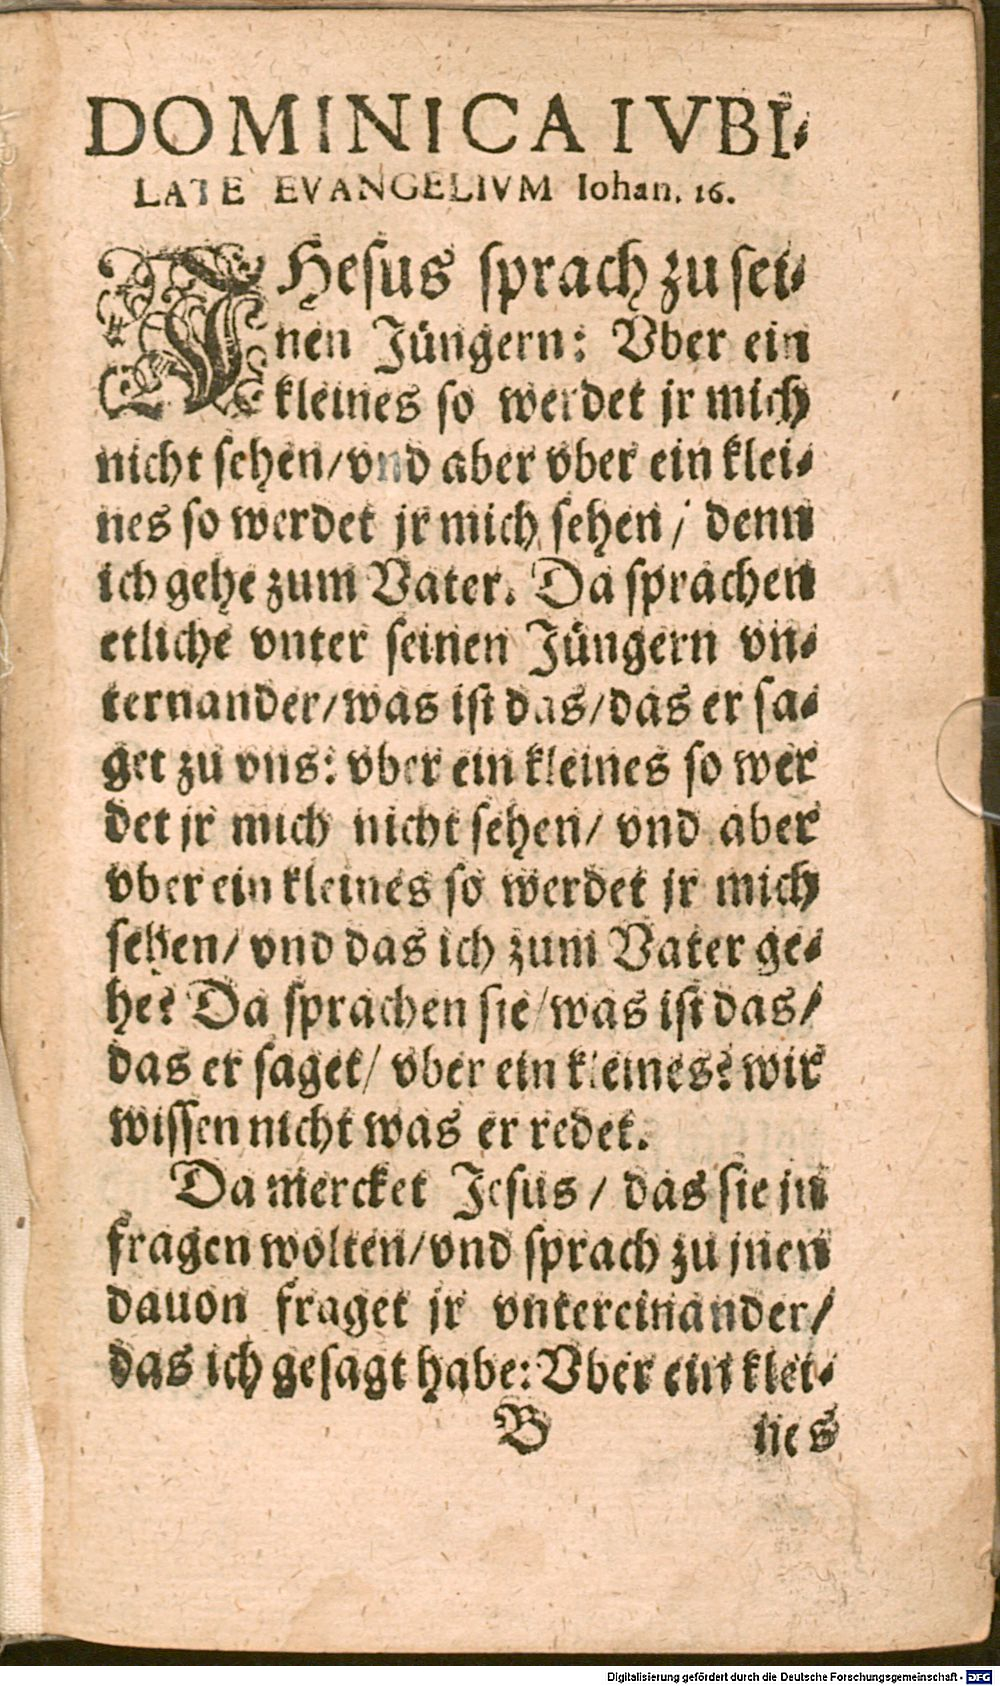 DOMINICA IVBI-
LATE EVANGELIVM Iohan. 16.
JHesus sprach zu sei-
nen Jüngern: Vber ein
kleines so werdet jr mich
nicht sehen/vnd aber vber ein klei-
nes so werdet jr mich sehen / denn
ich gehe zum Vater. Da sprachen
etliche vnter seinen Jüngern vn-
ternander/was ist das/das er sa-
get zu vns: vber ein kleines so wer
det jr mich nicht sehen/ vnd aber
vber ein kleines so werdet jr mich
sehen/ vnd das ich zum Vater ge-
he? Da sprachen sie/was ist das/
das er saget/ vber ein kleines? wir
wissen nicht was er redet.
Da mercket Jesus / das sie jn
fragen wolten/vnd sprach zu jnen
dauon fraget jr vntereinander/
das ich gesagt habe: Vber ein klei-
B nes
Digitalisierung gefördert durch die Deutsche Forschungsgemeinschaft - DFG